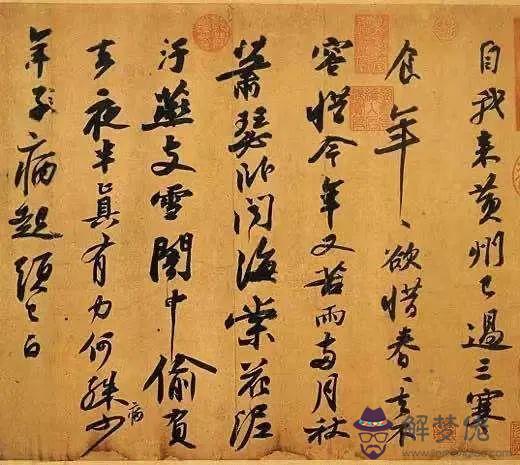 自我来黄州已過三寒
食年〻欲惜春〻去不
容惜今年又苦雨兩月秋
蕭瑟卧聞海棠花泥
汙燕支雪闇中偷負
去夜半真有力何殊少
病
年子病起須已白
解梦虎